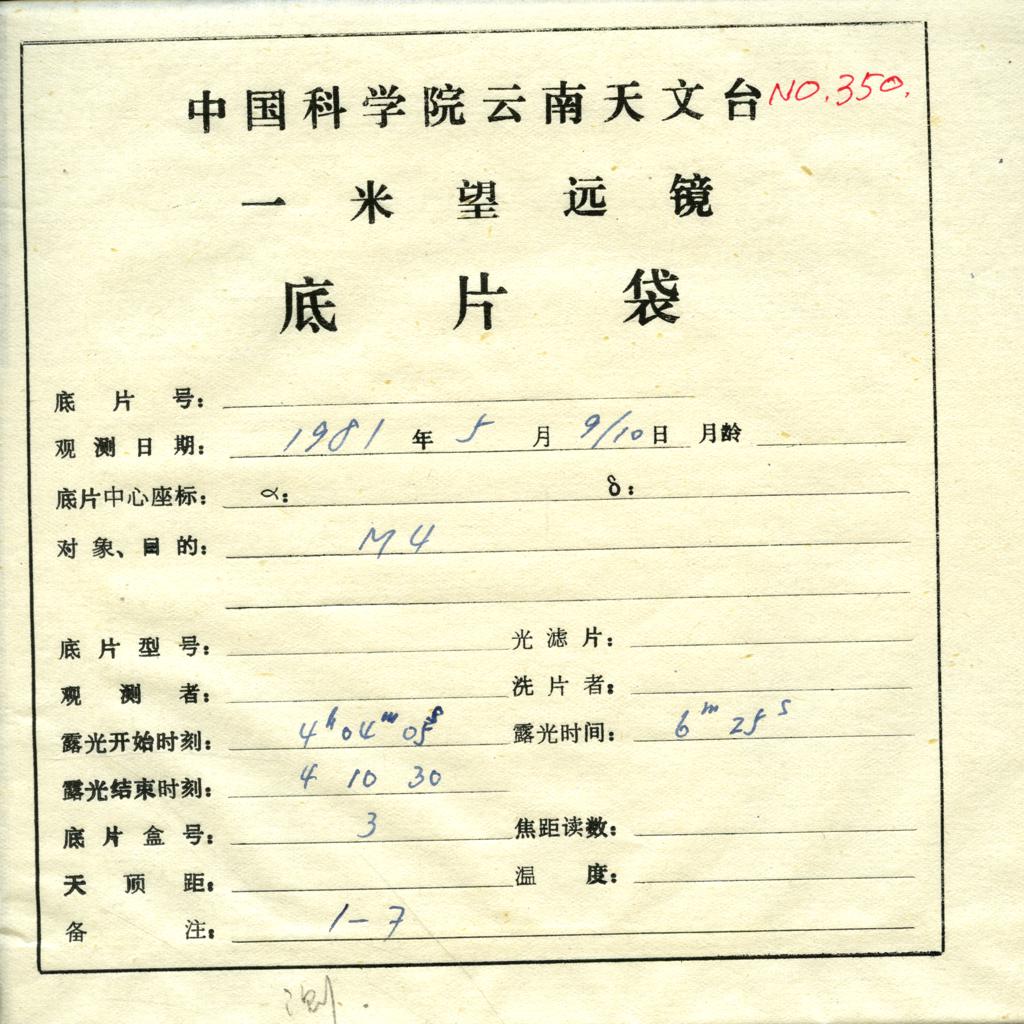 中国科学院云南天文台 NO.350.
一米望远镜
底片袋
底片号：
观测日期： 1981 年 5 月 9/10 日 月龄
底片中心座标： α： δ：
对象、目的： M4
底片型号： 光滤片：
观测者： 洗片者：
露光开始时刻： 4h 04m 05s 露光时间： 6m 25s
露光结束时刻： 4 10 30
底片盒号： 3 焦距读数：
天顶距： 温度：
备注： 1-7
测.